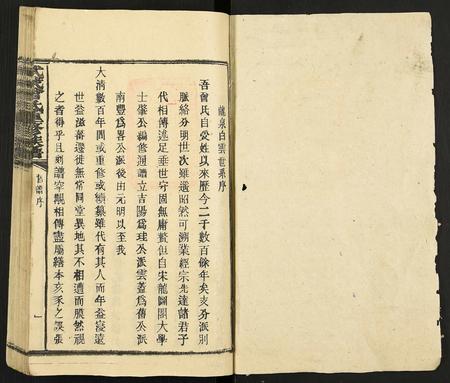 龍泉白雲世系序
吾曾氏自受姓以來歷今二千數百餘年矣支分派別
脈絡分明世次雖遙昭然可溯業經宗先達諸君子
代相傳述足垂世守固無庸贅但自宋龍圖閣大學
士肇公編修通譜立吉陽為珪公派雲蓋為舊公派
南豐為畧公派後由元明以至我
大清數百年間或重修或續纂雖代有其人而年益寖遠
世益滋蕃遷徙無常同堂異地其不相遭而膜然視
之者得乎且刻譜窂覯相傳盡屬繕本亥豕之誤張
舊譜序
一